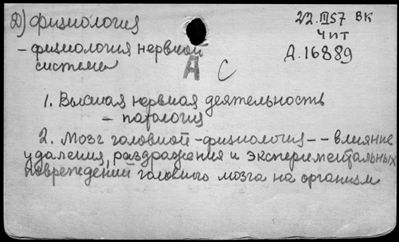 Д) физиология
22.III57 ВК
чит
- физиология нервной
Д.16889
системы
А С
1. Высшая нервная деятельность
- патология
2. Мозг головной - физиология -- влияние
удаления, раздражения и экспериментальных
повреждений головного мозга на организм